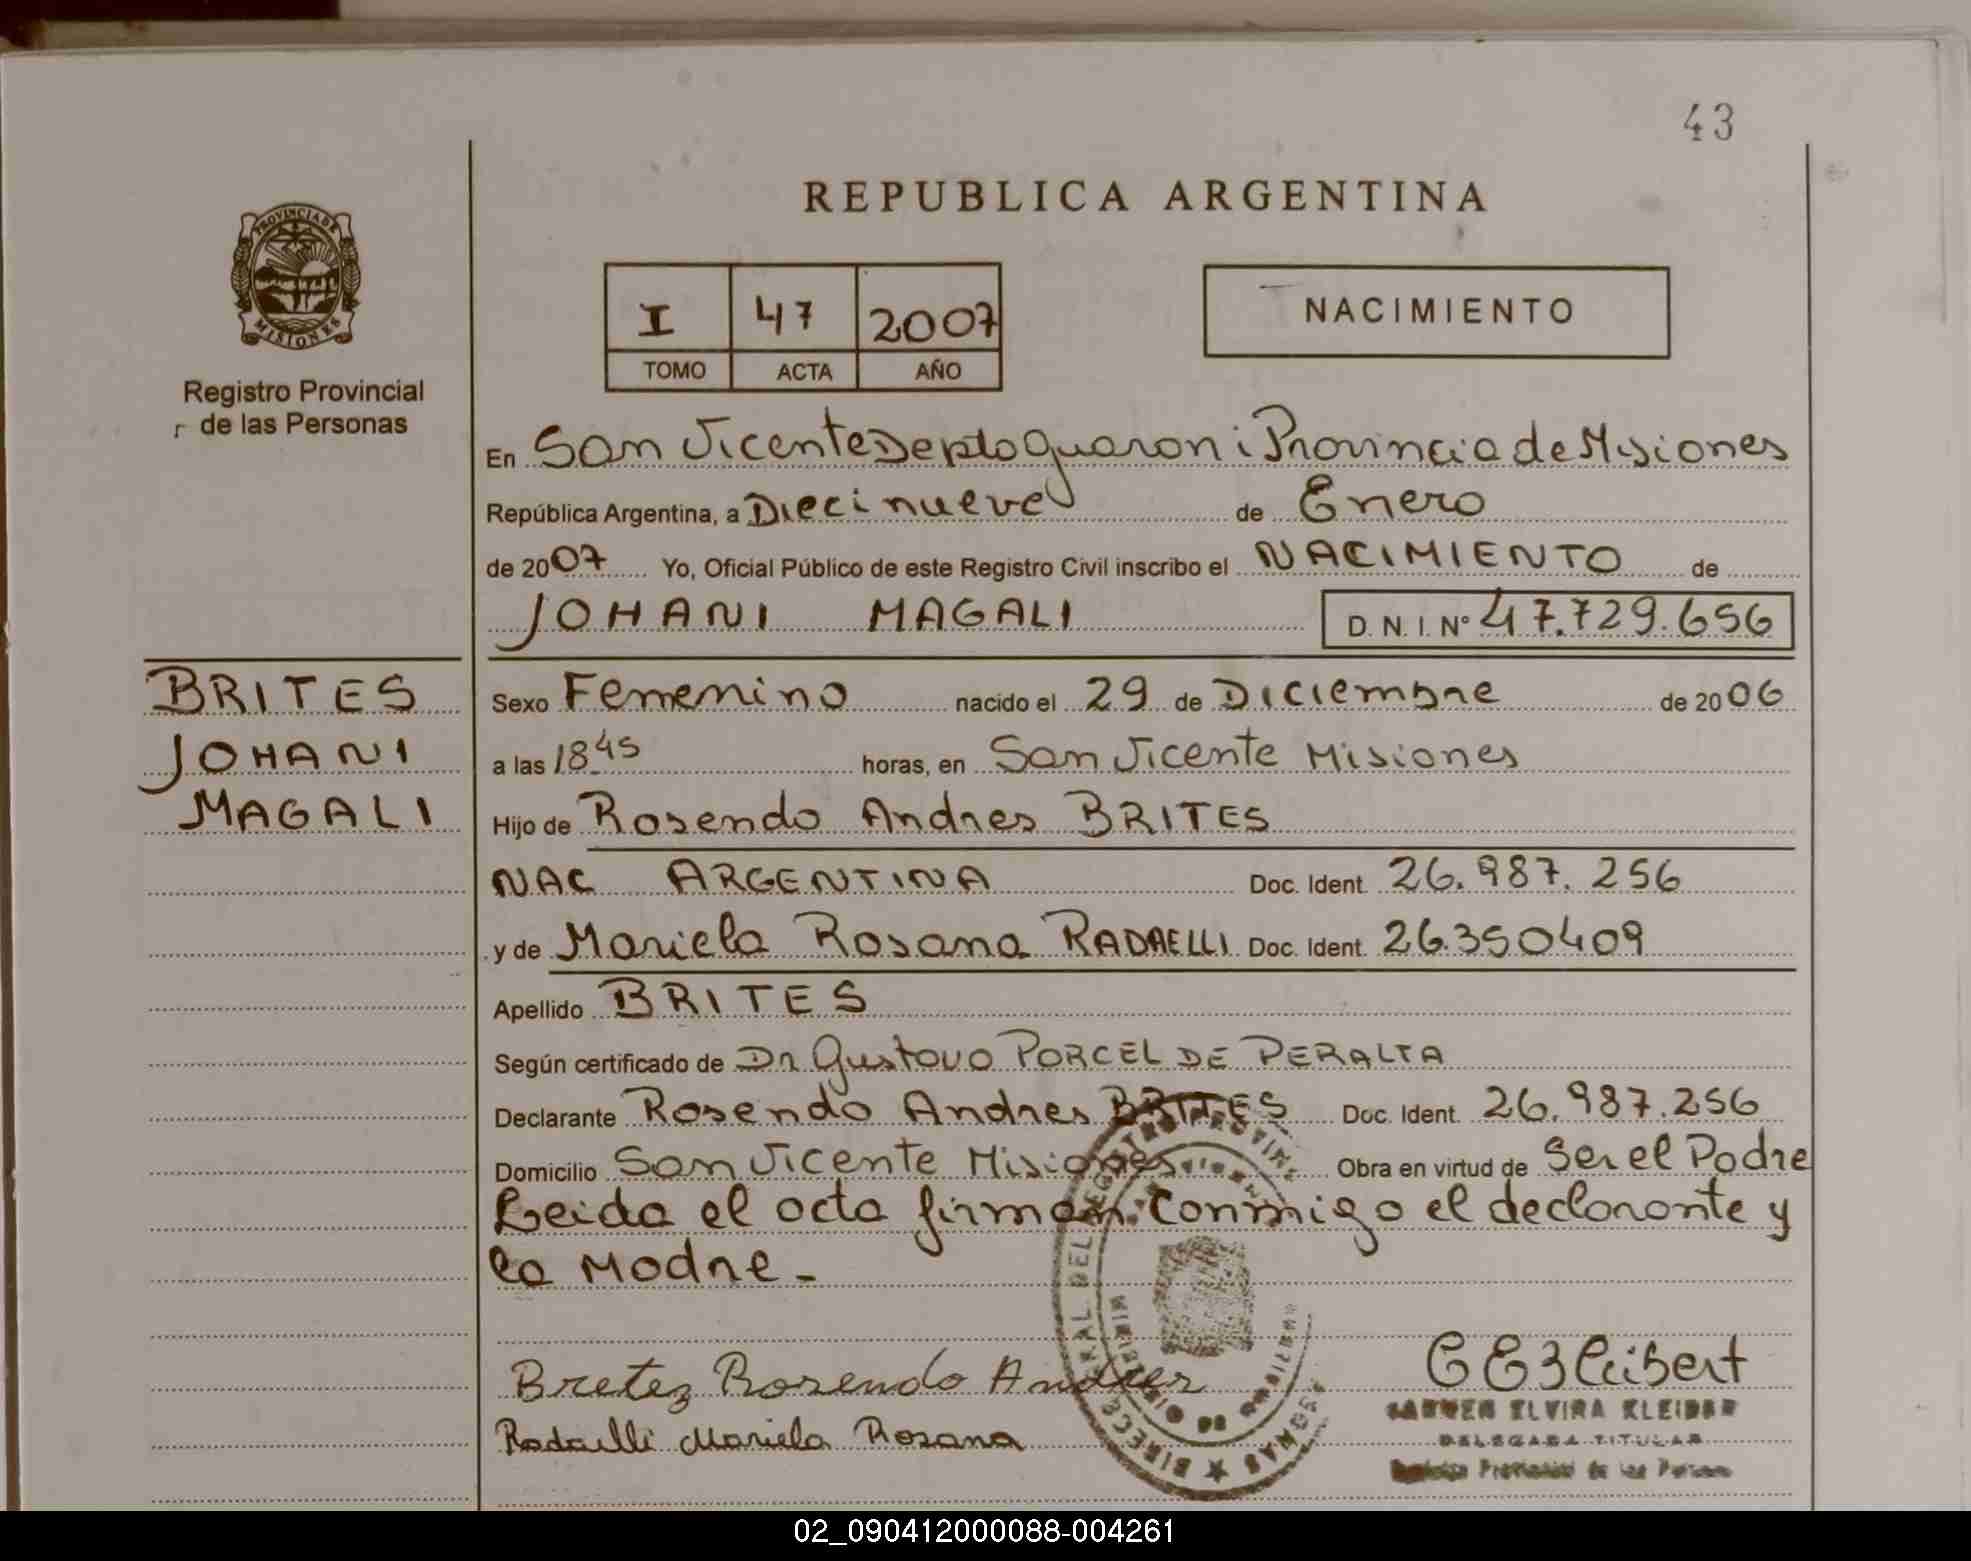 43
REPUBLICA ARGENTINA
PROVINCIA DE
MISIONES
Registro Provincial
de las Personas
I 47 2007
TOMO ACTA AÑO
NACIMIENTO
En San Vicente Depto Guarani Provincia de Misiones
República Argentina, a Diecinueve de Enero
de 2007 Yo, Oficial Público de este Registro Civil inscribo el NACIMIENTO de
JOHANI MAGALI D.N.I. Nº 47.729.656
BRITES
JOHANI
MAGALI
Sexo Femenino nacido el 29 de Diciembre de 2006
a las 18 45 horas, en San Vicente Misiones
Hijo de Rosendo Andres BRITES
NAC ARGENTINA Doc. Ident. 26.987.256
y de Mariela Rosana RADAELLI Doc. Ident. 26.350409
Apellido BRITES
Según certificado de Dr Gustavo PORCEL DE PERALTA
Declarante Rosendo Andres BRITES Doc. Ident. 26.987.256
Domicilio San Vicente Misiones Obra en virtud de Ser el Padre
Leida el acta firman conmigo el declarante y
la Madre -
Bretez Rosendo Andres
Radaelli Mariela Rosana
CARMEN ELVIRA
DELEGADA TITULAR
Provincial de las Personas
02_090412000088-004261